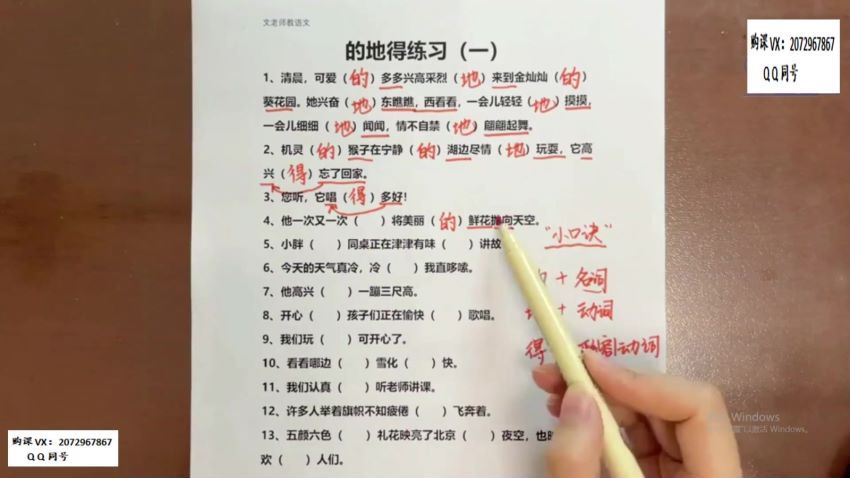 文老师教语文
购课VX：2072967867
QQ同号
的地得练习（一）
1、清晨，可爱（的）多多兴高采烈（地）来到金灿灿（的）
葵花园。她兴奋（地）东瞧瞧，西看看，一会儿轻轻（地）摸摸，
一会儿细细（地）闻闻，情不自禁（地）翩翩起舞。
2、机灵（的）猴子在宁静（的）湖边尽情（地）玩耍，它高
兴（得）忘了回家。
3、您听，它唱（得）多好！
4、他一次又一次（ ）将美丽（的）鲜花抛向天空。
5、小胖（ ）同桌正在津津有味（ ）讲故
6、今天的天气真冷，冷（ ）我直哆嗦。
7、他高兴（ ）一蹦三尺高。
8、开心（ ）孩子们正在愉快（ ）歌唱。
9、我们玩（ ）可开心了。
10、看看哪边（ ）雪化（ ）快。
11、我们认真（ ）听老师讲课。
12、许多人举着旗帜不知疲倦（ ）飞奔着。
13、五颜六色（ ）礼花映亮了北京（ ）夜空，也
欢（ ）人们。
"小口诀"
+ 名词
+ 动词
得
动词
Windows
以激活 Windows。
购课VX：2072967867
QQ同号